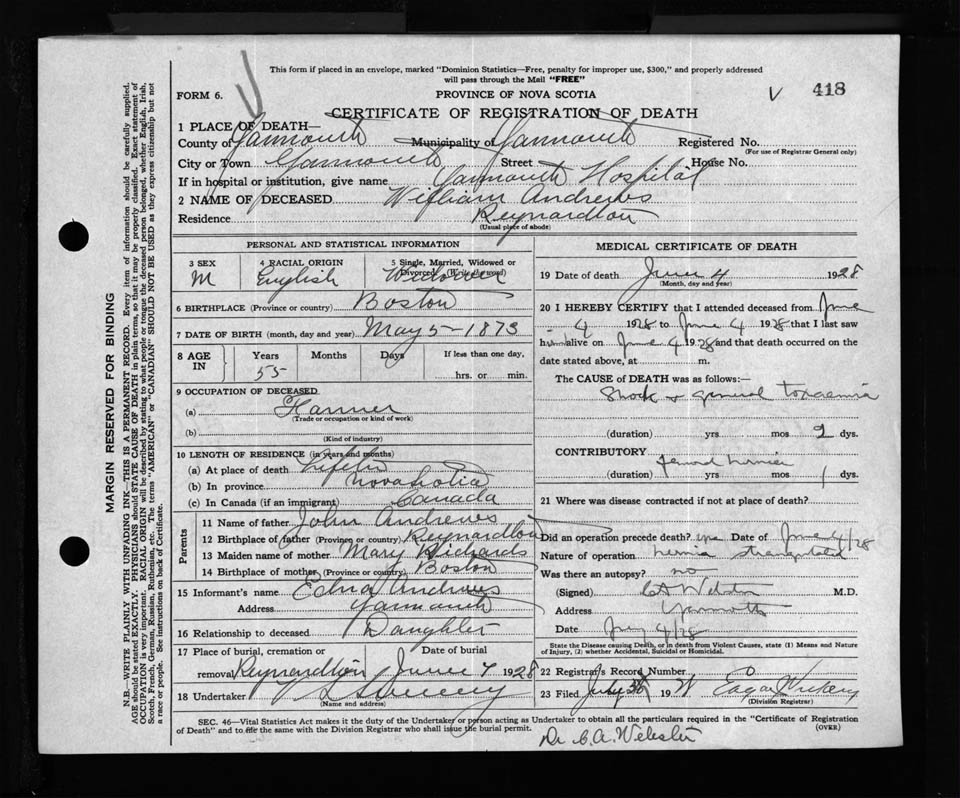 This form if placed in an envelope, marked "Dominion Statistics—Free, penalty for improper use, $300," and properly addressed
will pass through the Mail "FREE"
FORM 6. PROVINCE OF NOVA SCOTIA V 418
CERTIFICATE OF REGISTRATION OF DEATH
1 PLACE OF DEATH—
County of Yarmouth Municipality of Yarmouth Registered No.
(For use of Registrar General only)
City or Town Yarmouth Street House No.
If in hospital or institution, give name Yarmouth Hospital
2 NAME OF DECEASED William Andrews
Residence Reynardton
(Usual place of abode)
PERSONAL AND STATISTICAL INFORMATION
3 SEX 4 RACIAL ORIGIN 5 Single, Married, Widowed or
Divorced (Write the word)
M English Widower
6 BIRTHPLACE (Province or country) Boston
7 DATE OF BIRTH (month, day and year) May 5-1873
8 AGE IN Years Months Days If less than one day,
55 hrs. or min.
9 OCCUPATION OF DECEASED
(a) Farmer
(Trade or occupation or kind of work)
(b)
(Kind of industry)
10 LENGTH OF RESIDENCE (in years and months)
(a) At place of death
(b) In province Nova Scotia
(c) In Canada (if an immigrant) Canada
Parents
11 Name of father John Andrews
12 Birthplace of father (Province or country) Reynardton
13 Maiden name of mother Mary Richards
14 Birthplace of mother (Province or country) Boston
15 Informant's name Edna Andrews
Address Yarmouth
16 Relationship to deceased Daughter
17 Place of burial, cremation or removal Date of burial
Reynardton June 7 1928
18 Undertaker
(Name and address)
MEDICAL CERTIFICATE OF DEATH
19 Date of death June 4 1928
(Month, day and year)
20 I HEREBY CERTIFY that I attended deceased from June
4 1928 to June 4 1928 that I last saw
him alive on June 4 1928 and that death occurred on the
date stated above, at m.
The CAUSE OF DEATH was as follows:—
Shock & general toxaemia
(duration) yrs mos 2 dys.
CONTRIBUTORY
(duration) yrs mos 1 dys.
21 Where was disease contracted if not at place of death?
Did an operation precede death? yes Date of June 4/28
Nature of operation hernia strangulated
Was there an autopsy? no
(Signed) C A Webster M.D.
Address Yarmouth
Date 4/28
State the Disease causing Death, or in death from Violent Causes, state (1) Means and Nature
of Injury, (2) whether Accidental, Suicidal or Homicidal.
22 Registrar's Record Number 0
23 Filed July 19
(Division Registrar)
SEC. 46—Vital Statistics Act makes it the duty of the Undertaker or person acting as Undertaker to obtain all the particulars required in the "Certificate of Registration
of Death" and to file the same with the Division Registrar who shall issue the burial permit.
(OVER)
Dr C. A. Webster
MARGIN RESERVED FOR BINDING
N.B.—WRITE PLAINLY WITH UNFADING INK—THIS IS A PERMANENT RECORD. Every item of information should be carefully supplied.
AGE should be stated EXACTLY. PHYSICIANS should STATE CAUSE OF DEATH in plain terms, so that it may be properly classified. Exact statement of
OCCUPATION is very important. RACIAL ORIGIN will be described by stating to what people or tongue the deceased person belonged, whether English, Irish,
Scotch, French, German, Russian, Ruthenian, etc. The terms "AMERICAN" or "CANADIAN" SHOULD NOT BE USED as they express citizenship but not
a race or people. See instructions on back of Certificate.